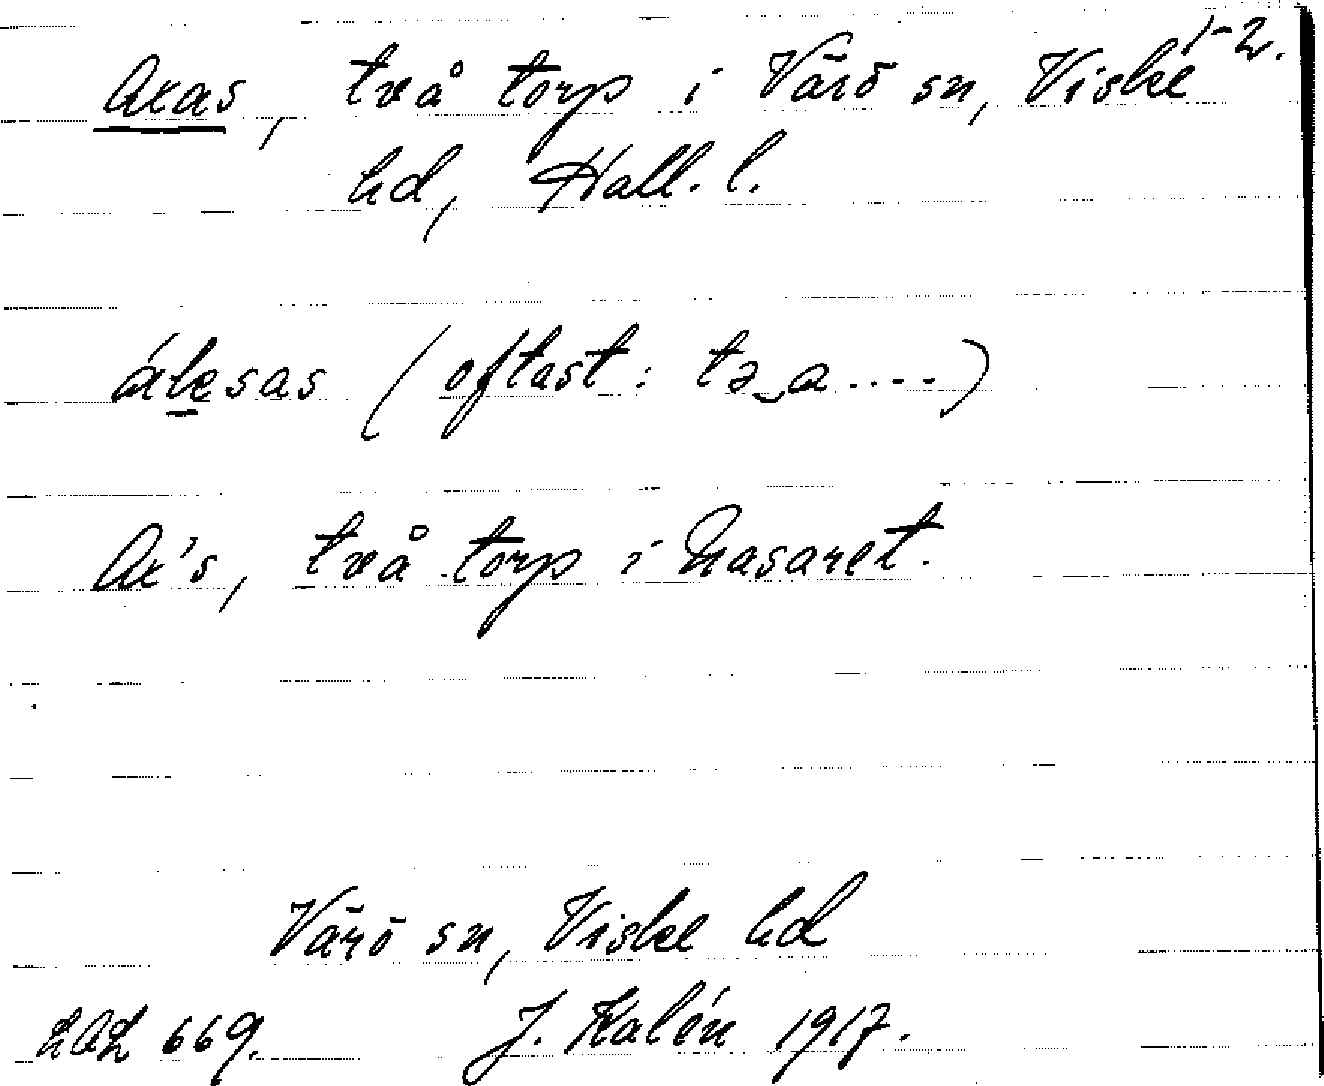 Axas, två torp i Värö sn, Viske 1-2.
hd, Hall. l.
áksas (oftast: tə‿a....)
Ax's, två torp i Nasaret.
Värö sn, Viske hd
669. J. Kalén 1917.